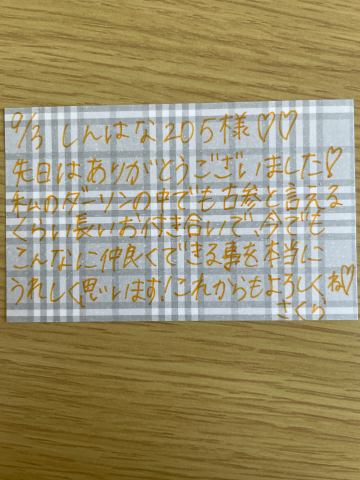 9/3 しんはな205様♡♡
先日はありがとうございました!
私のダーリンの中でも古参と言える
くらい長いお付き合いで、今でも
こんなに仲良くできる事を本当に
うれしく思います!これからもよろしくね♡
さくら